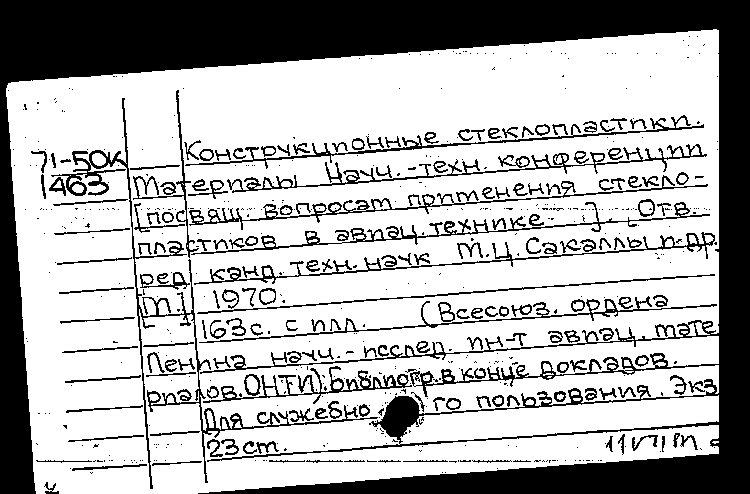 Конструкционные стеклопластики.
71-50К
1463
Материалы Науч.-техн. конференции
[посвящ. вопросам применения стекло-
пластиков в авиац. технике. ]. [Отв.
ред. канд. техн. наук М.Ц. Сакаллы и др.
[М.] 1970.
163с. с илл. (Всесоюз. ордена
Ленина науч.-исслед. ин-т авиац. мате
риалов. ОНТИ). Библиогр. в конце докладов.
Для служебно го пользования. Экз
23 ст.